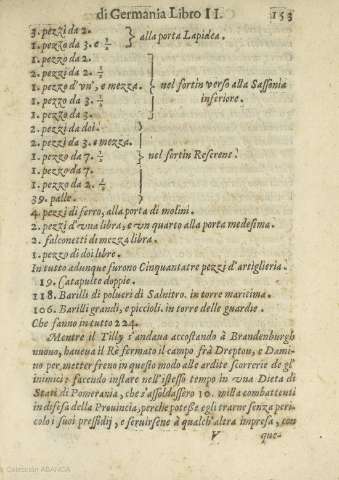 di Germania Libro II. 153
3. pezzi da 2.
1. pezzo da 3. e 1/2
alla porta Lapidea.
1. pezzo da 2.
2. pezzi da 2. 1/2
1. pezzo d'vn', e mezza.
1. pezzo da 3. 1/2
1. pezzo da 3.
nel fortin verso alla Sassonia
inferiore.
2. pezzi da doi.
2. pezzi da 3. e mezza.
1. pezzo da 7. 1/2
1. pezzo da 7.
1. pezzo da 2. 1/2
39. palle.
nel fortin Referene.
4. pezzi di ferro, alla porta di molini.
2. pezzi d'vna libra, e vn quarto alla porta medesima.
2. falconetti di mezza libra.
1. pezzo di doi libre.
In tutto adunque furono Cinquantatre pezzi d'artiglieria.
19. Catapulte doppie.
118. Barilli di polueri di Salnitro. in torre maritima.
106. Barilli grandi, e piccioli. in torre delle guardie.
Che fanno in tutto 224.
Mentre il Tilly s'andaua accostando à Brandenburgh
nuouo, haueua il Rè fermato il campo frà Drepton, e Dami-
no per metter freno in questo modo alle ardite scorrerie de gl'
inimici: facendo instare nell'istesso tempo in vna Dieta di
Stati di Pomerania, che s'assoldassero 10. milla combattenti
in difesa della Prouincia, perche potesse egli trarne senza peri-
colo i suoi pressidij, e seruirsene à qualch'altra impresa, con
V que-
Colección ABANCA